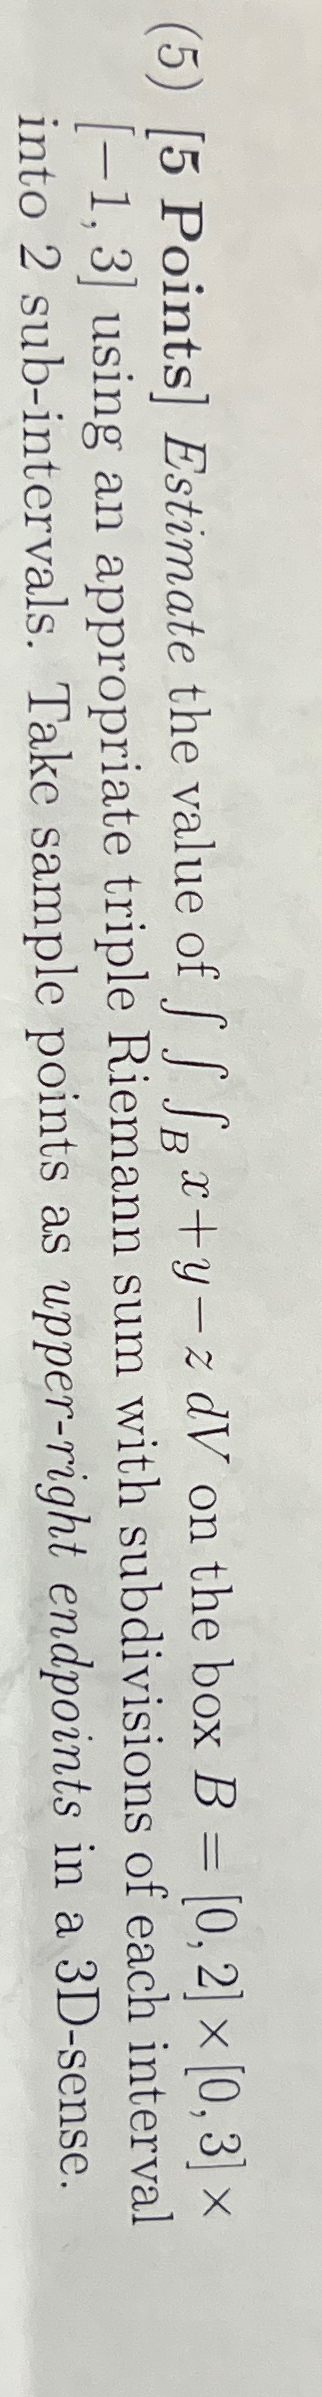 (5) [5 Points] Estimate the value of ∫ ∫ ∫_B x+y−z dV on the box B = [0, 2] × [0, 3] ×
[−1, 3] using an appropriate triple Riemann sum with subdivisions of each interval
into 2 sub-intervals. Take sample points as upper-right endpoints in a 3D-sense.